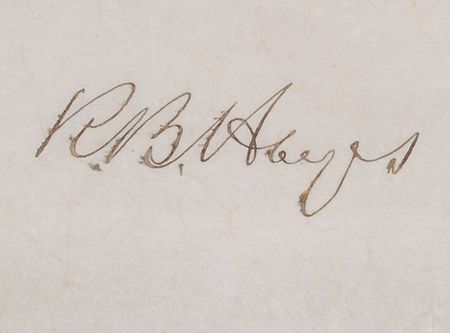 R. B. Hayes